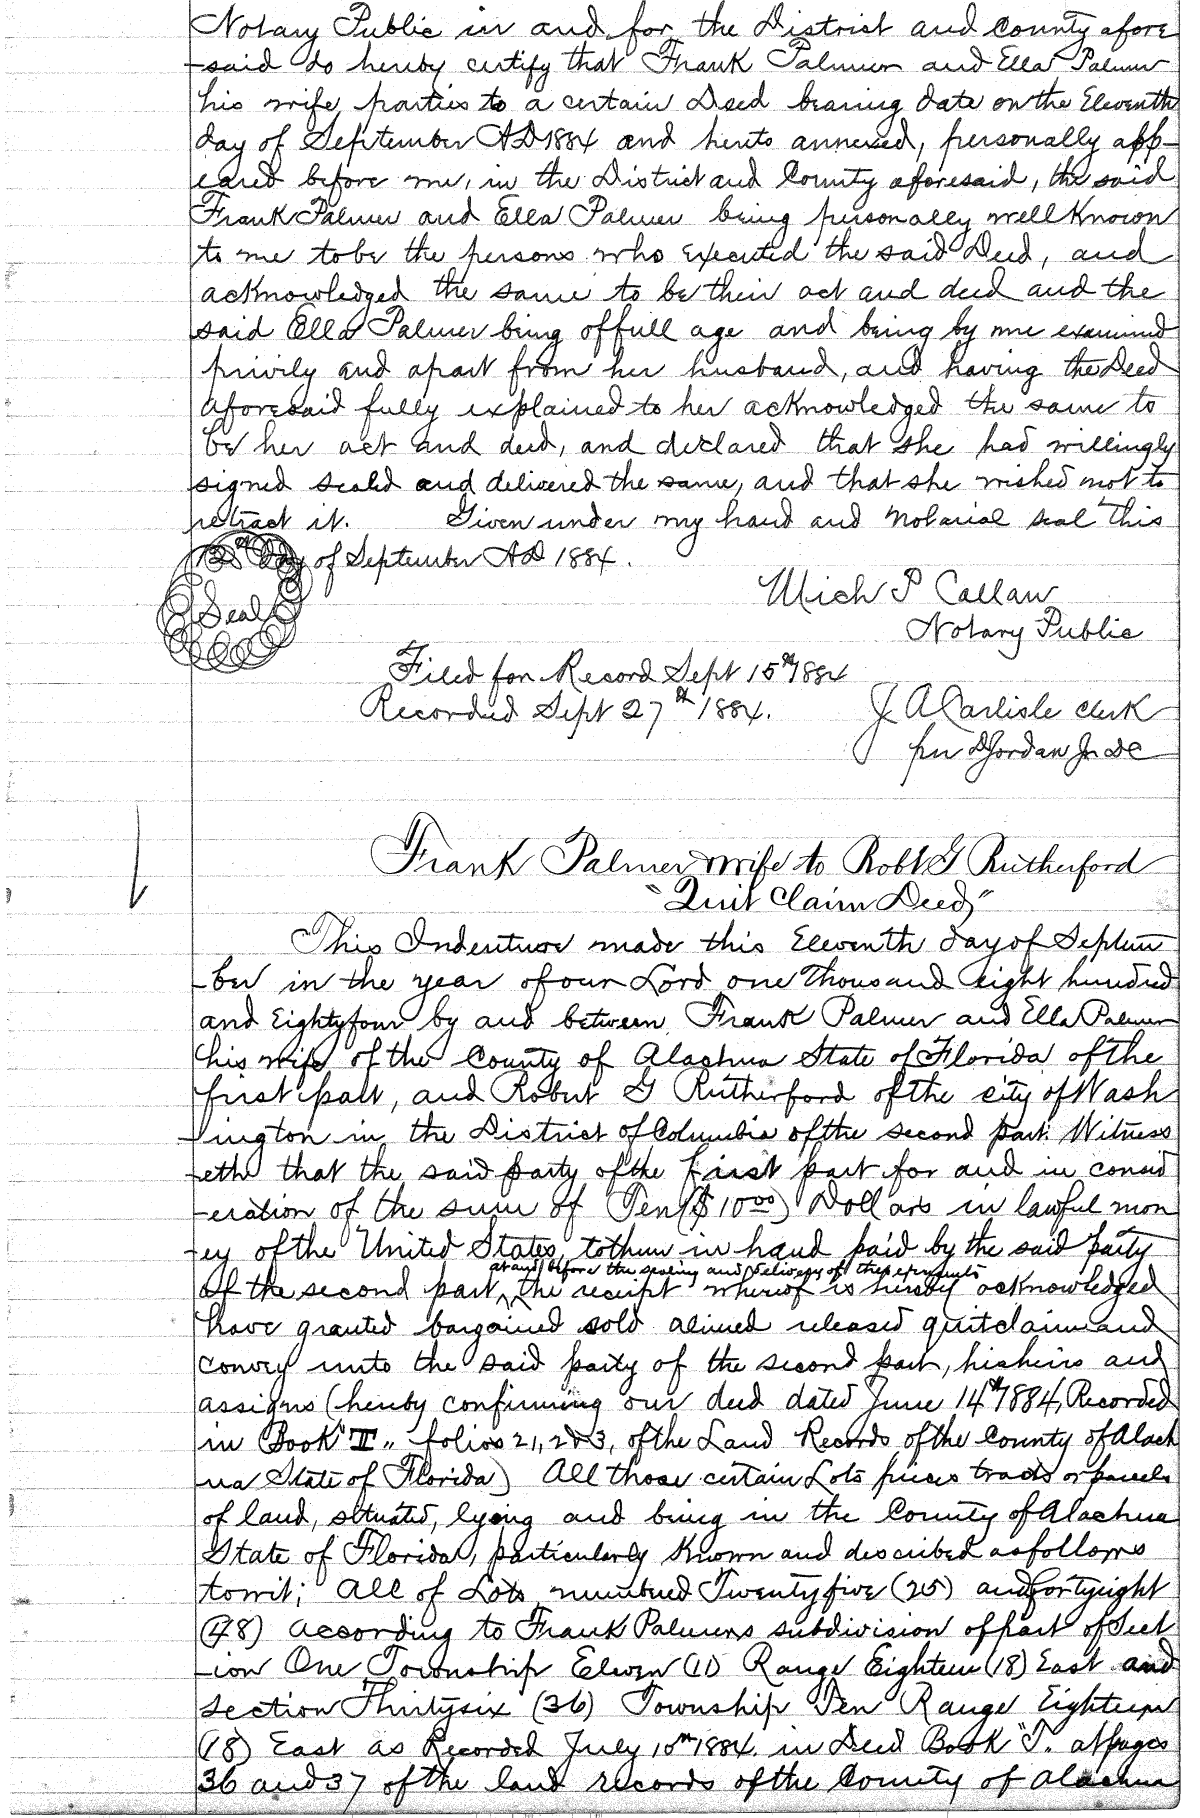 Notary Public in and for the District and County afore
-said do hereby certify that Frank Palmer and Ella Palmer
his wife parties to a certain Deed bearing date on the Eleventh
day of September AD 1884 and hereto annexed, personally app-
eared before me, in the District and County aforesaid, the said
Frank Palmer and Ella Palmer being personally well Known
to me to be the persons who executed the said Deed, and
acknowledged the same to be their act and deed and the
said Ella Palmer being of full age and being by me examined
privily and apart from her husband, and having the Deed
aforesaid fully explained to her acknowledged the same to
be her act and deed, and declared that she had willingly
signed sealed and delivered the same, and that she wished not to
retract it. Given under my hand and Notarial seal this
day of September AD 1884.
Seal
Mich P Callan
Notary Public
Filed for Record Sept 15th 1884
Recorded Sept 27th 1884. J A Carlisle Clerk
per D Jordan Jr DC
Frank Palmer wife to Robt G Rutherford
"Quit Claim Deed"
This Indenture made this Eleventh day of Septem
-ber in the year of our Lord one Thousand eight hundred
and Eightyfour by and between Frank Palmer and Ella Palmer
his wife of the County of Alachua State of Florida of the
first part, and Robert G Rutherford of the city of Wash
-ington in the District of Columbia of the second part. Witness
-eth that the said party of the first part for and in consid
-eration of the sum of Ten ($10 00) Dollars in lawful mon
-ey of the United States, to them in hand paid by the said party
at and before the sealing and delivery of these presents
of the second part, the receipt whereof is hereby acknowledged
have granted bargained sold aliened released quitclaim and
convey unto the said party of the second part, his heirs and
assigns (hereby confirming our deed dated June 14th 1884, Recorded
in Book "II" folios 21, 2 & 3, of the Land Records of the County of Alach
-ua State of Florida) All those certain Lots pieces tracts or parcels
of land, situated, lying and being in the County of Alachua
State of Florida, particularly Known and described as follows
towit; All of Lots numbered Twentyfive (25) and fortyeight
(48) according to Frank Palmers subdivision of part of Sect
-ion One Township Eleven (11) Range Eighteen (18) East and
section Thirtysix (36) Township Ten Range Eighteen
(18) East as Recorded July 10th 1884. in Deed Book "T" at pages
36 and 37 of the land records of the County of Alachua